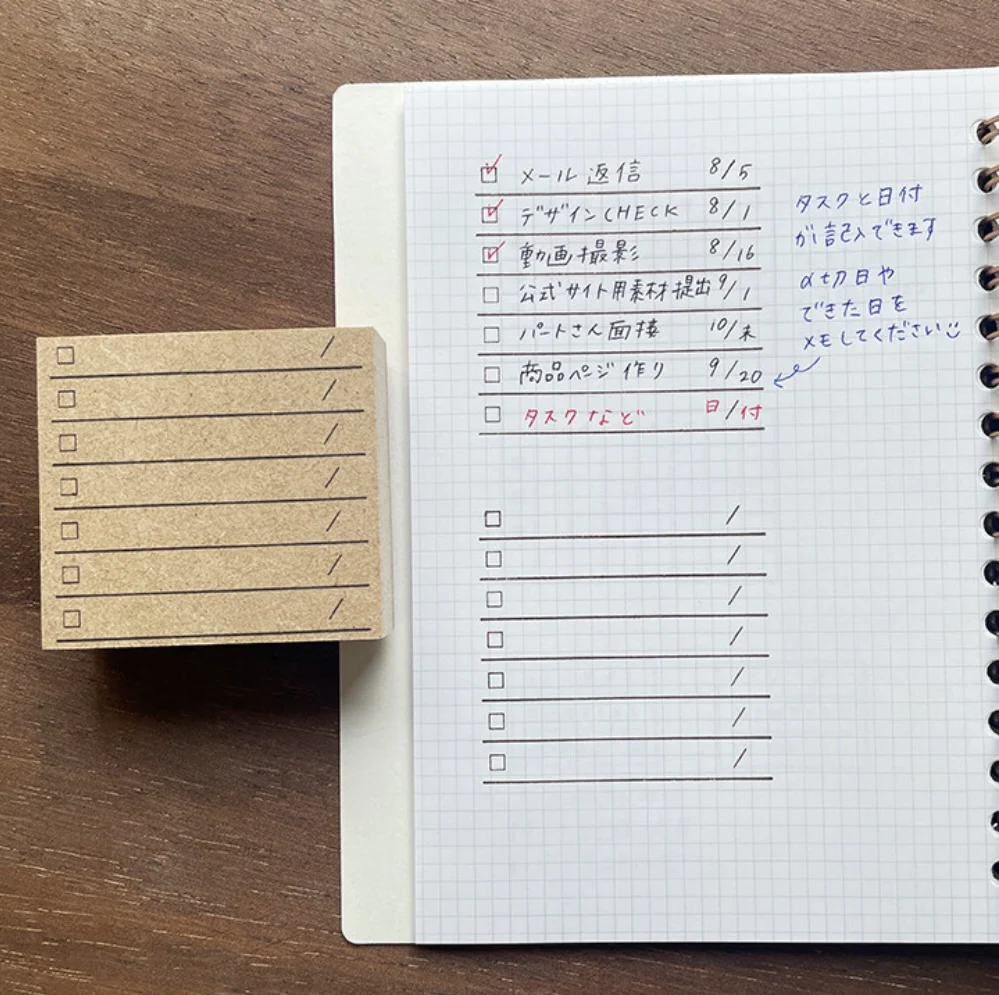 □ /
□ /
□ /
□ /
□ /
□ /
□ /
☑ メール返信 8/5
☑ デザインCHECK 8/1
☑ 動画撮影 8/16
□ 公式サイト用素材提出 9/1
□ パートさん面接 10/末
□ 商品ページ作り 9/20
□ タスクなど 日/付
タスクと日付
が記入できます
〆切日や
できた日を
メモしてください
□ /
□ /
□ /
□ /
□ /
□ /
□ /